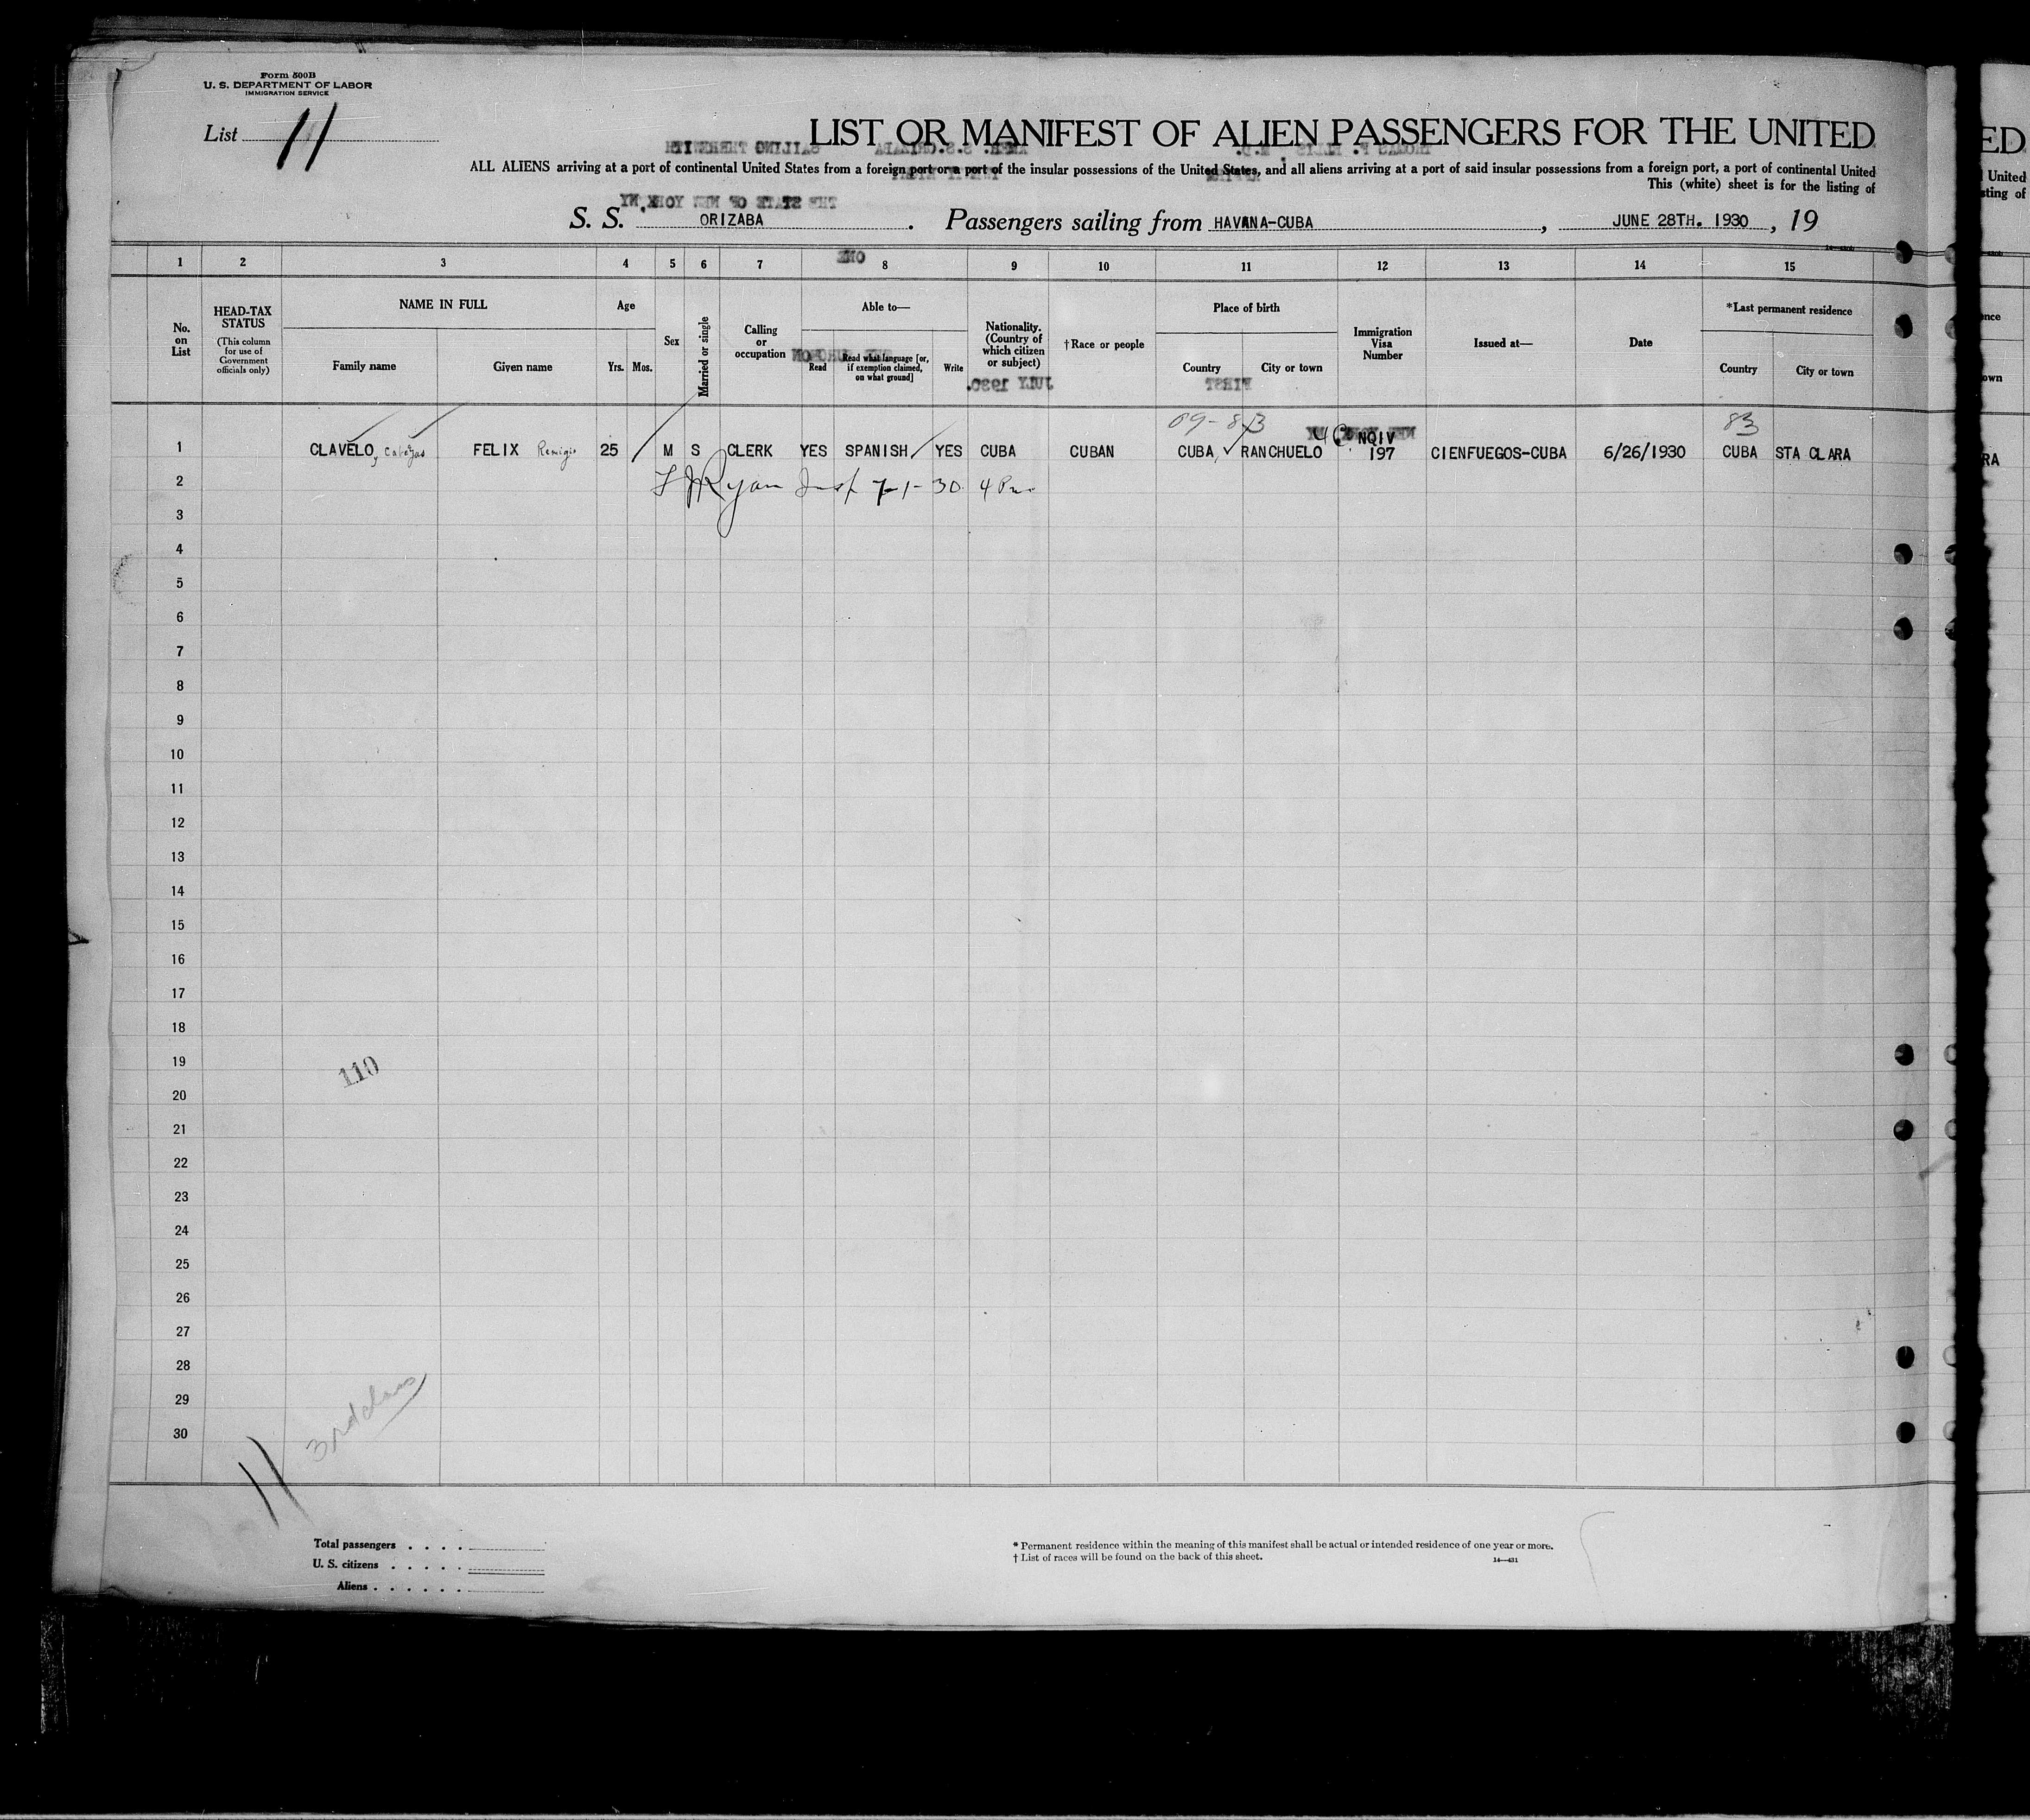 Form 500B
U. S. DEPARTMENT OF LABOR
IMMIGRATION SERVICE
List 11
LIST OR MANIFEST OF ALIEN PASSENGERS FOR THE UNITED
ALL ALIENS arriving at a port of continental United States from a foreign port or a port of the insular possessions of the United States, and all aliens arriving at a port of said insular possessions from a foreign port, a port of continental United
This (white) sheet is for the listing of
S. S. ORIZABA. Passengers sailing from HAVANA-CUBA, JUNE 28TH. 1930, 19
1 2 3 4 5 6 7 8 9 10 11 12 13 14 15
No. on List
HEAD-TAX STATUS
(This column for use of Government officials only)
NAME IN FULL
Family name Given name
Age
Yrs. Mos.
Sex
Married or single
Calling or occupation
Able to—
Read
Read what language [or, if exemption claimed, on what ground]
Write
Nationality. (Country of which citizen or subject)
†Race or people
Place of birth
Country City or town
Immigration Visa Number
Issued at—
Date
*Last permanent residence
Country City or town
09-83 83
NQIV
1 CLAVELO, FELIX Remigio 25 M S CLERK YES SPANISH YES CUBA CUBAN CUBA RANCHUELO 197 CIENFUEGOS-CUBA 6/26/1930 CUBA STA CLARA
2 Ryan Insp 7-1-30 4 Pm
3
4
5
6
7
8
9
10
11
12
13
14
15
16
17
18
19
110
20
21
22
23
24
25
26
27
28
29
30
3rd class
11
Total passengers
U. S. citizens
Aliens
* Permanent residence within the meaning of this manifest shall be actual or intended residence of one year or more.
† List of races will be found on the back of this sheet.
ED
United
sting of
ence
own
RA